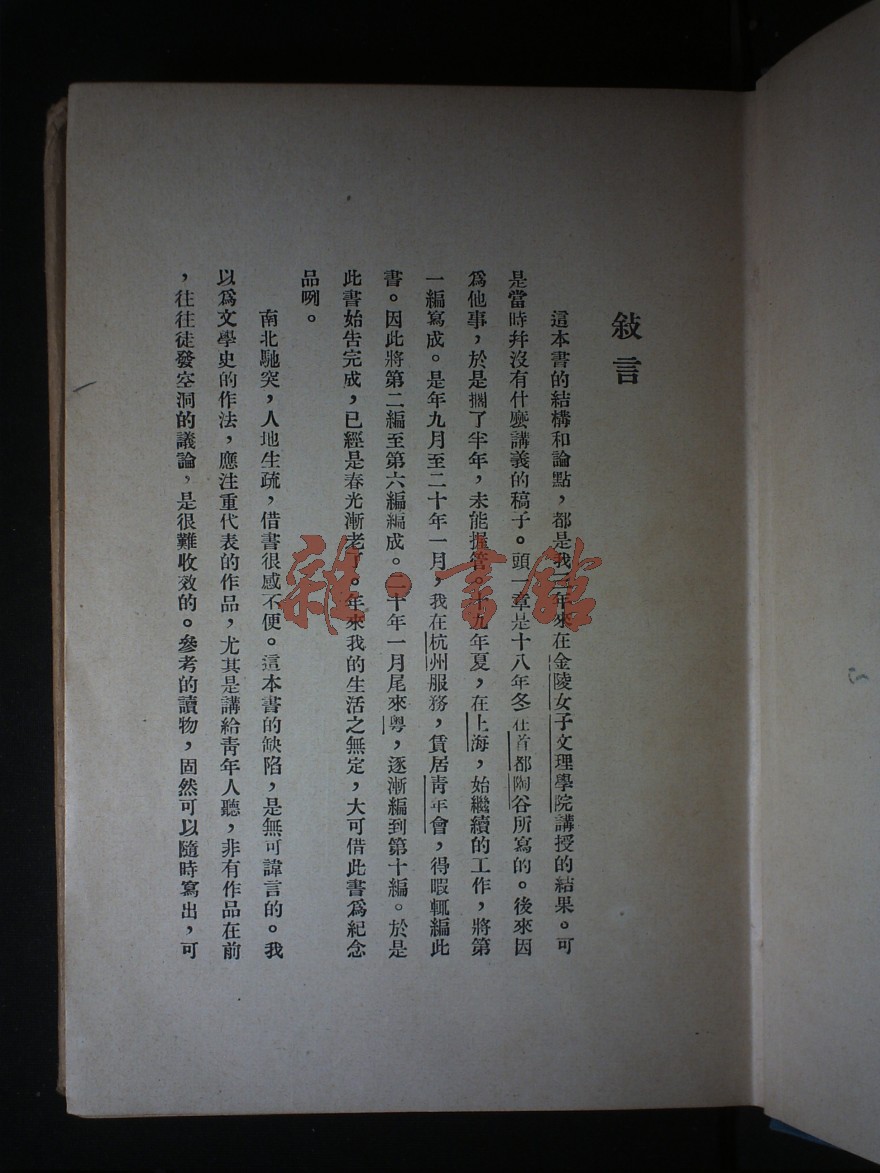 敍言
這本書的結構和論點，都是我一年來在金陵女子文理學院講授的結果。可
是當時幷沒有什麼講義的稿子。頭一章是十八年冬在首都陶谷所寫的。後來因
爲他事，於是擱了半年，未能握管。十九年夏，在上海，始繼續的工作，將第
一編寫成。是年九月至二十年一月，我在杭州服務，賃居靑年會，得暇輒編此
書。因此將第二編至第六編編成。二十年一月尾來粤，逐漸編到第十編。於是
此書始吿完成，已經是春光漸老了。年來我的生活之無定，大可借此書爲紀念
品咧。
南北馳突，人地生疏，借書很感不便。這本書的缺陷，是無可諱言的。我
以爲文學史的作法，應注重代表的作品，尤其是講給靑年人聽，非有作品在前
，往往徒發空洞的議論，是很難收效的。參考的讀物，固然可以隨時寫出，可
雜·書館